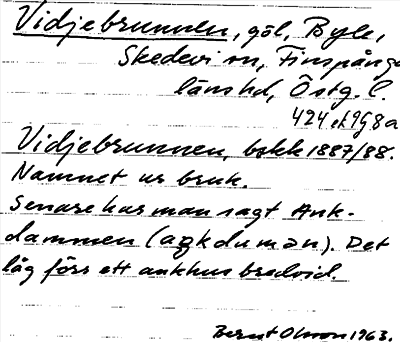 Vidjebrunnen, göl, Byle,
Skedevi sn, Finspånga
länshd, Östg. l.
424 et 9G 8a
Vidjebrunnen, bskk 1887/88.
Namnet ur bruk.
Senare har man sagt Ank-
dammen (aŋkduman). Det
låg förr ett ankhus bredvid.
Bernt Olsson 1963.